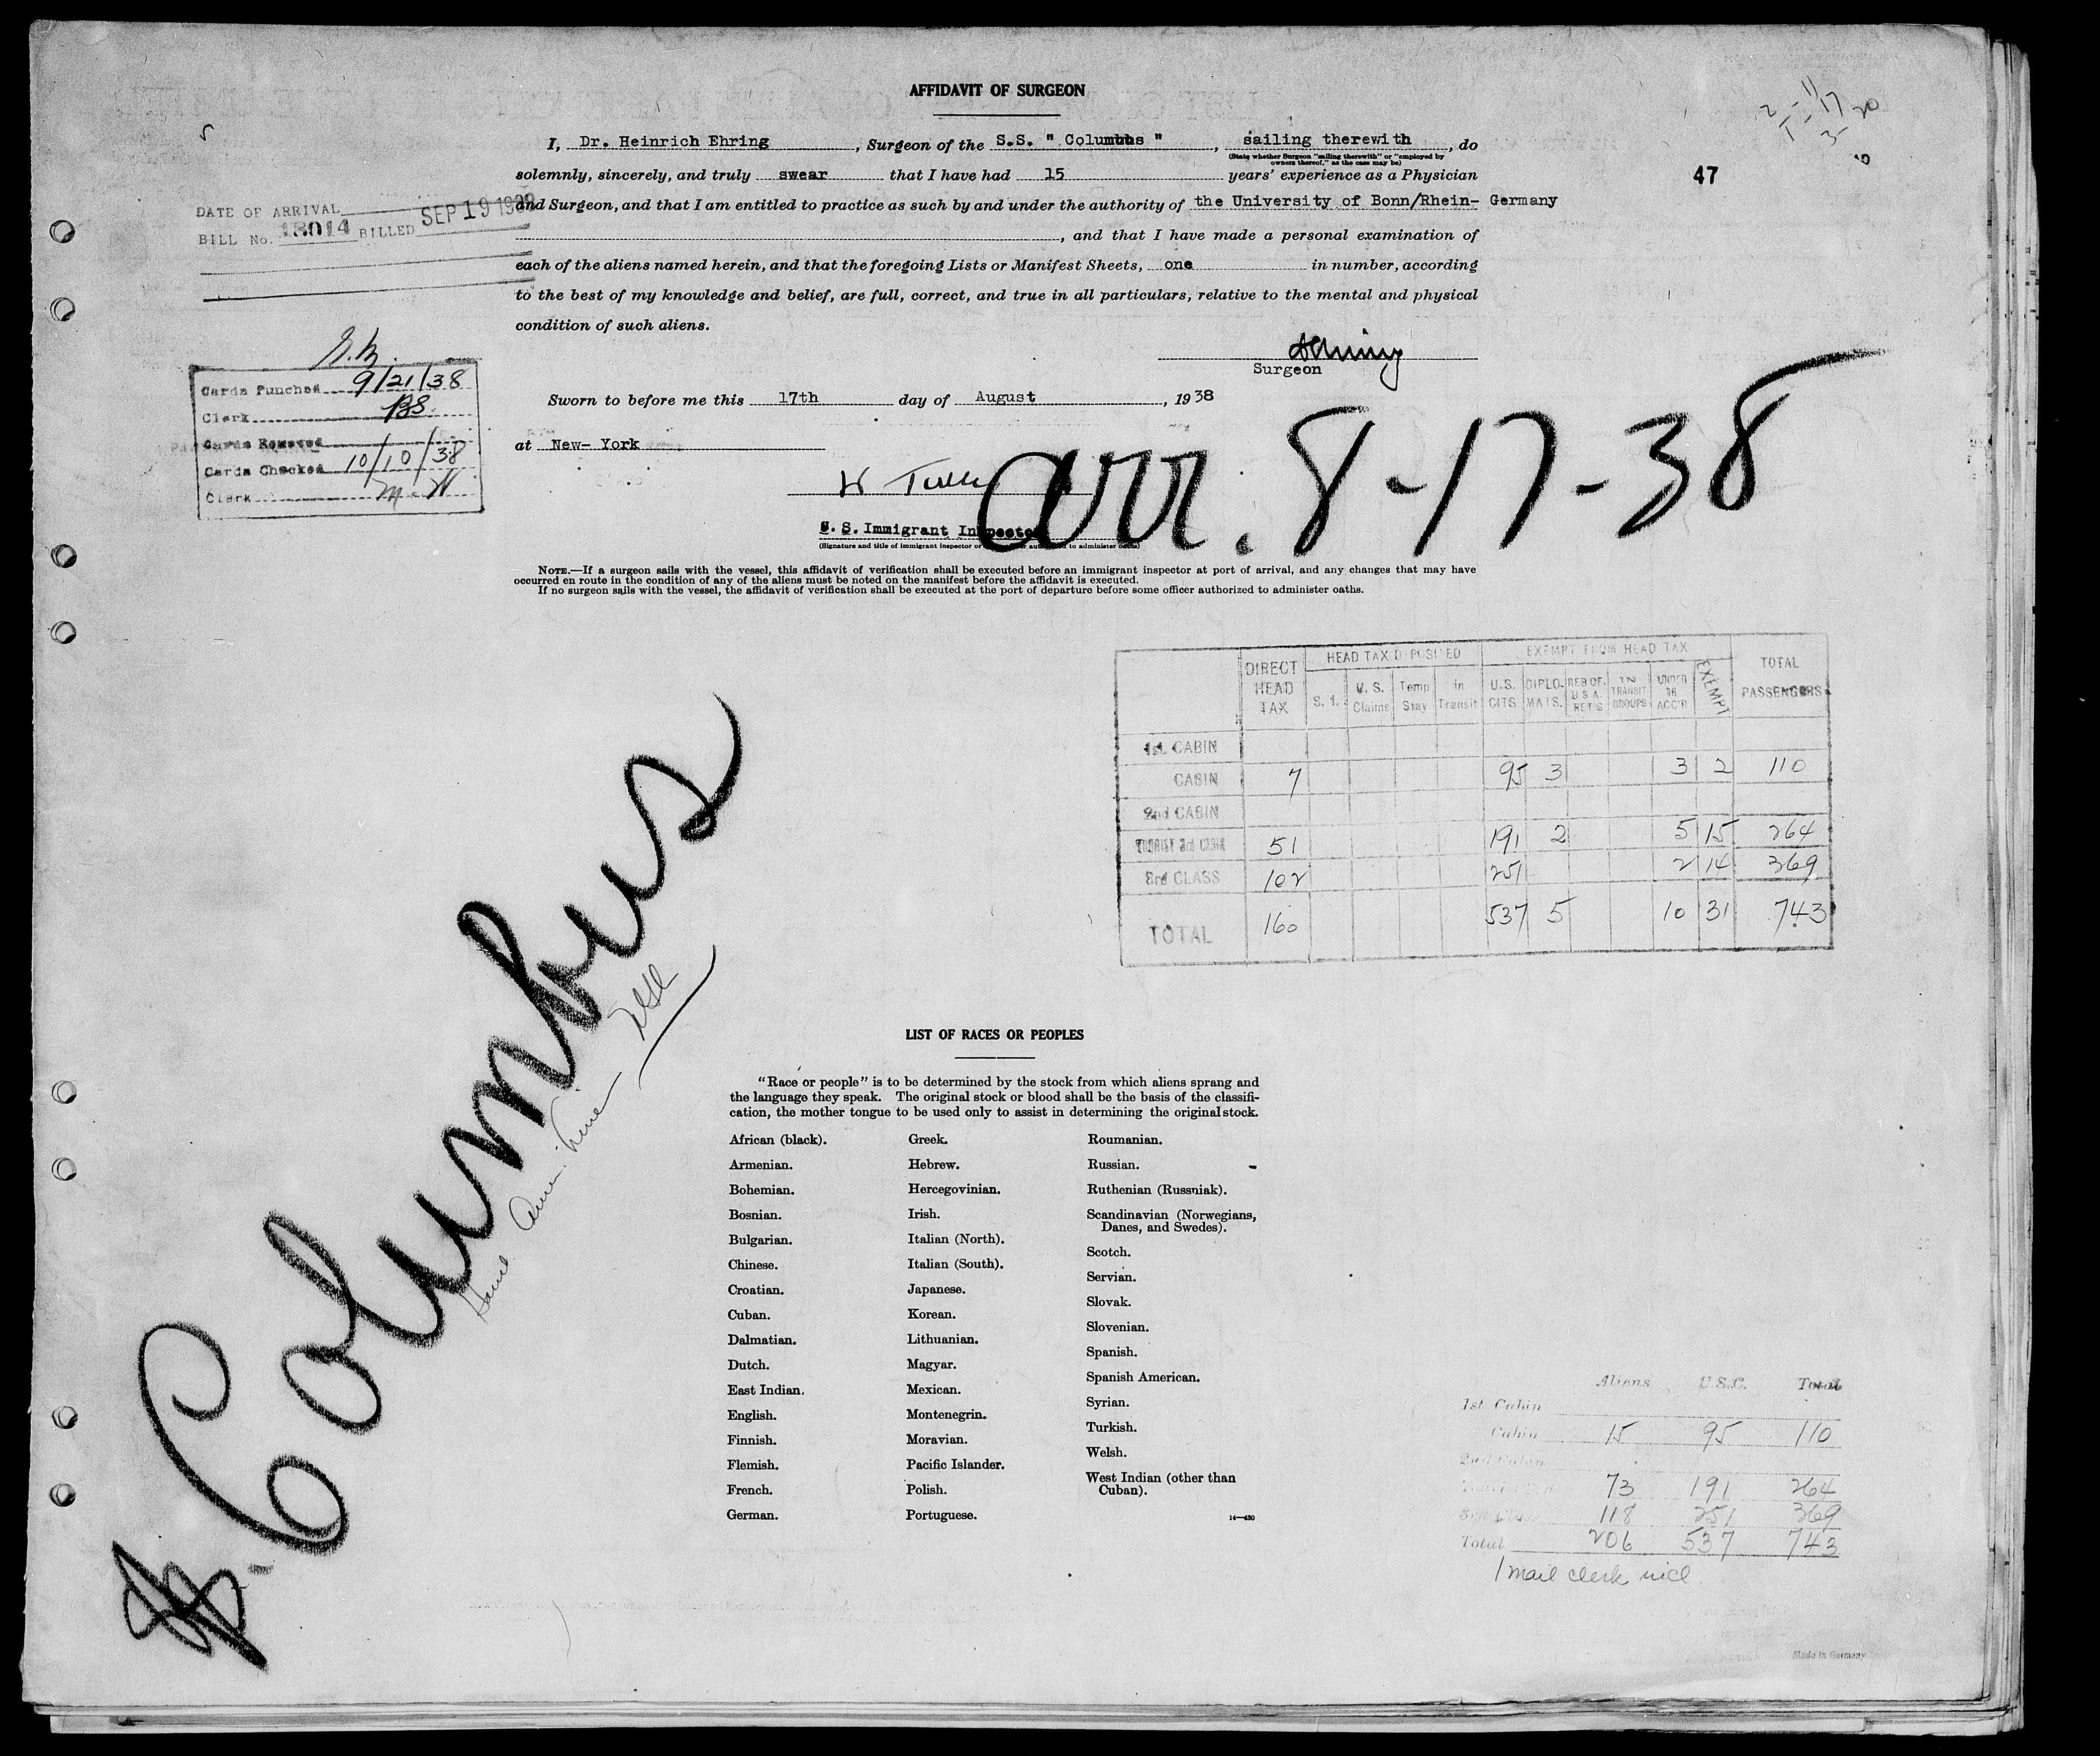 AFFIDAVIT OF SURGEON
I, Dr. Heinrich Ehring, Surgeon of the S.S. " Columbus ", sailing therewith, do
(State whether Surgeon "sailing therewith" or "employed by
owners thereof," as the case may be)
solemnly, sincerely, and truly swear that I have had 15 years' experience as a Physician
47
and Surgeon, and that I am entitled to practice as such by and under the authority of the University of Bonn/Rhein- Germany
, and that I have made a personal examination of
each of the aliens named herein, and that the foregoing Lists or Manifest Sheets, one in number, according
to the best of my knowledge and belief, are full, correct, and true in all particulars, relative to the mental and physical
condition of such aliens.
DATE OF ARRIVAL
BILL No. 18014 BILLED SEP 19 1938
Surgeon
Cards Punched 9/21/38
Clerk BS.
Cards Removed
Cards Checked 10/10/38
Clerk
Sworn to before me this 17th day of August, 1938
at New- York
arr. 8-17-38
U. S. Immigrant Inspector
(Signature and title of immigrant inspector or to administer oaths)
NOTE.—If a surgeon sails with the vessel, this affidavit of verification shall be executed before an immigrant inspector at port of arrival, and any changes that may have
occurred en route in the condition of any of the aliens must be noted on the manifest before the affidavit is executed.
If no surgeon sails with the vessel, the affidavit of verification shall be executed at the port of departure before some officer authorized to administer oaths.
DIRECT HEAD TAX HEAD TAX DEPOSITED EXEMPT FROM HEAD TAX TOTAL PASSENGERS
S. I. U. S. Claims Temp Stay in Transit U.S. CITS. DIPLO-MATS. RES OF. U S A. RET'G IN TRANSIT GROUPS UNDER 16 ACC'D EXEMPT
1st. CABIN
CABIN 7 95 3 3 2 110
2nd CABIN
TOURIST 3rd CABIN 51 191 2 5 15 264
3rd CLASS 102 251 2 14 369
TOTAL 160 537 5 10 31 743
Columbus
LIST OF RACES OR PEOPLES
"Race or people" is to be determined by the stock from which aliens sprang and
the language they speak. The original stock or blood shall be the basis of the classifi-
cation, the mother tongue to be used only to assist in determining the original stock.
African (black).
Armenian.
Bohemian.
Bosnian.
Bulgarian.
Chinese.
Croatian.
Cuban.
Dalmatian.
Dutch.
East Indian.
English.
Finnish.
Flemish.
French.
German.
Greek.
Hebrew.
Hercegovinian.
Irish.
Italian (North).
Italian (South).
Japanese.
Korean.
Lithuanian.
Magyar.
Mexican.
Montenegrin.
Moravian.
Pacific Islander.
Polish.
Portuguese.
Roumanian.
Russian.
Ruthenian (Russniak).
Scandinavian (Norwegians,
Danes, and Swedes).
Scotch.
Servian.
Slovak.
Slovenian.
Spanish.
Spanish American.
Syrian.
Turkish.
Welsh.
West Indian (other than
Cuban).
14—430
Aliens U.S.C. Total
1st Cabin
Cabin 15 95 110
2nd Cabin
73 191 264
118 251 369
Total 206 537 743
1 mail clerk incl
Made in Germany